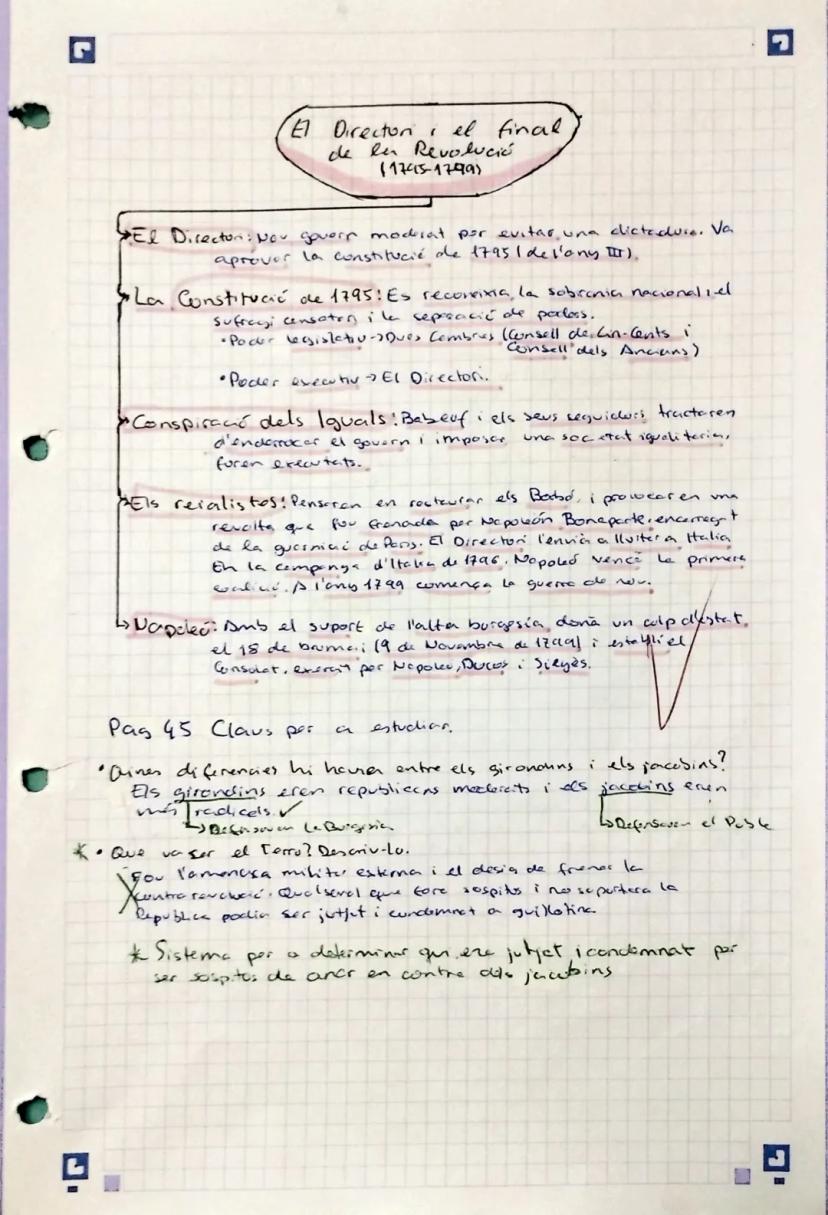 El Directori i el final
de la Revolució
(1795-1799)
El Directori: Nou govern moderat per evitar una dictadura. Va
aprovar la constitució de 1795 (de l'any III).
La Constitució de 1795: Es reconeixia la sobirania nacional, el
sufragi censatari i la separació de poders.
• Poder legislatiu → Dues Cambres (Consell de Cin-Cents i
Consell dels Ancians)
• Poder executiu → El Directori.
Conspiració dels Iguals: Babeuf i els seus seguidors tractaren
d'enderrocar el govern i imposar una societat igualitaria,
foren executats.
Els reialistes: Pensaren en restaurar els Borbó, i provocaren una
revolta que fou frenada per Napoleón Bonaparte, encarregat
de la guarnició de Paris. El Directori l'envià a lluitar a Italia
En la campanya d'Italia de 1796. Napoleó vencé la primera
coalició. A l'any 1799 comença la guerra de nou.
Napoleó: Amb el suport de l'alta burgesia, donà un colp d'estat,
el 18 de brumari (9 de Novembre de 1799) i establí el
Consolat, exercit per Napoleó, Ducos i Sieyès.
Pag 45 Claus per a estudiar.
• Quines diferencies hi havia entre els girondins i els jacobins?
Els girondins eren republicans moderats i els jacobins eren
més radicals. ✓
↳ Defensaven la Burgesia
↳ Defensaven el Poble
* • Que va ser el Terror? Descriu-lo.
Fou l'amenaça militar externa i el desig de frenar la
contrarevolució. Qualsevol que fora sospitós i no suportara la
Republica podia ser jutjat i condemnat a guillotina
* Sistema per a determinar qui era jutjat i condemnat per
ser sospitos de anar en contra dels jacobins